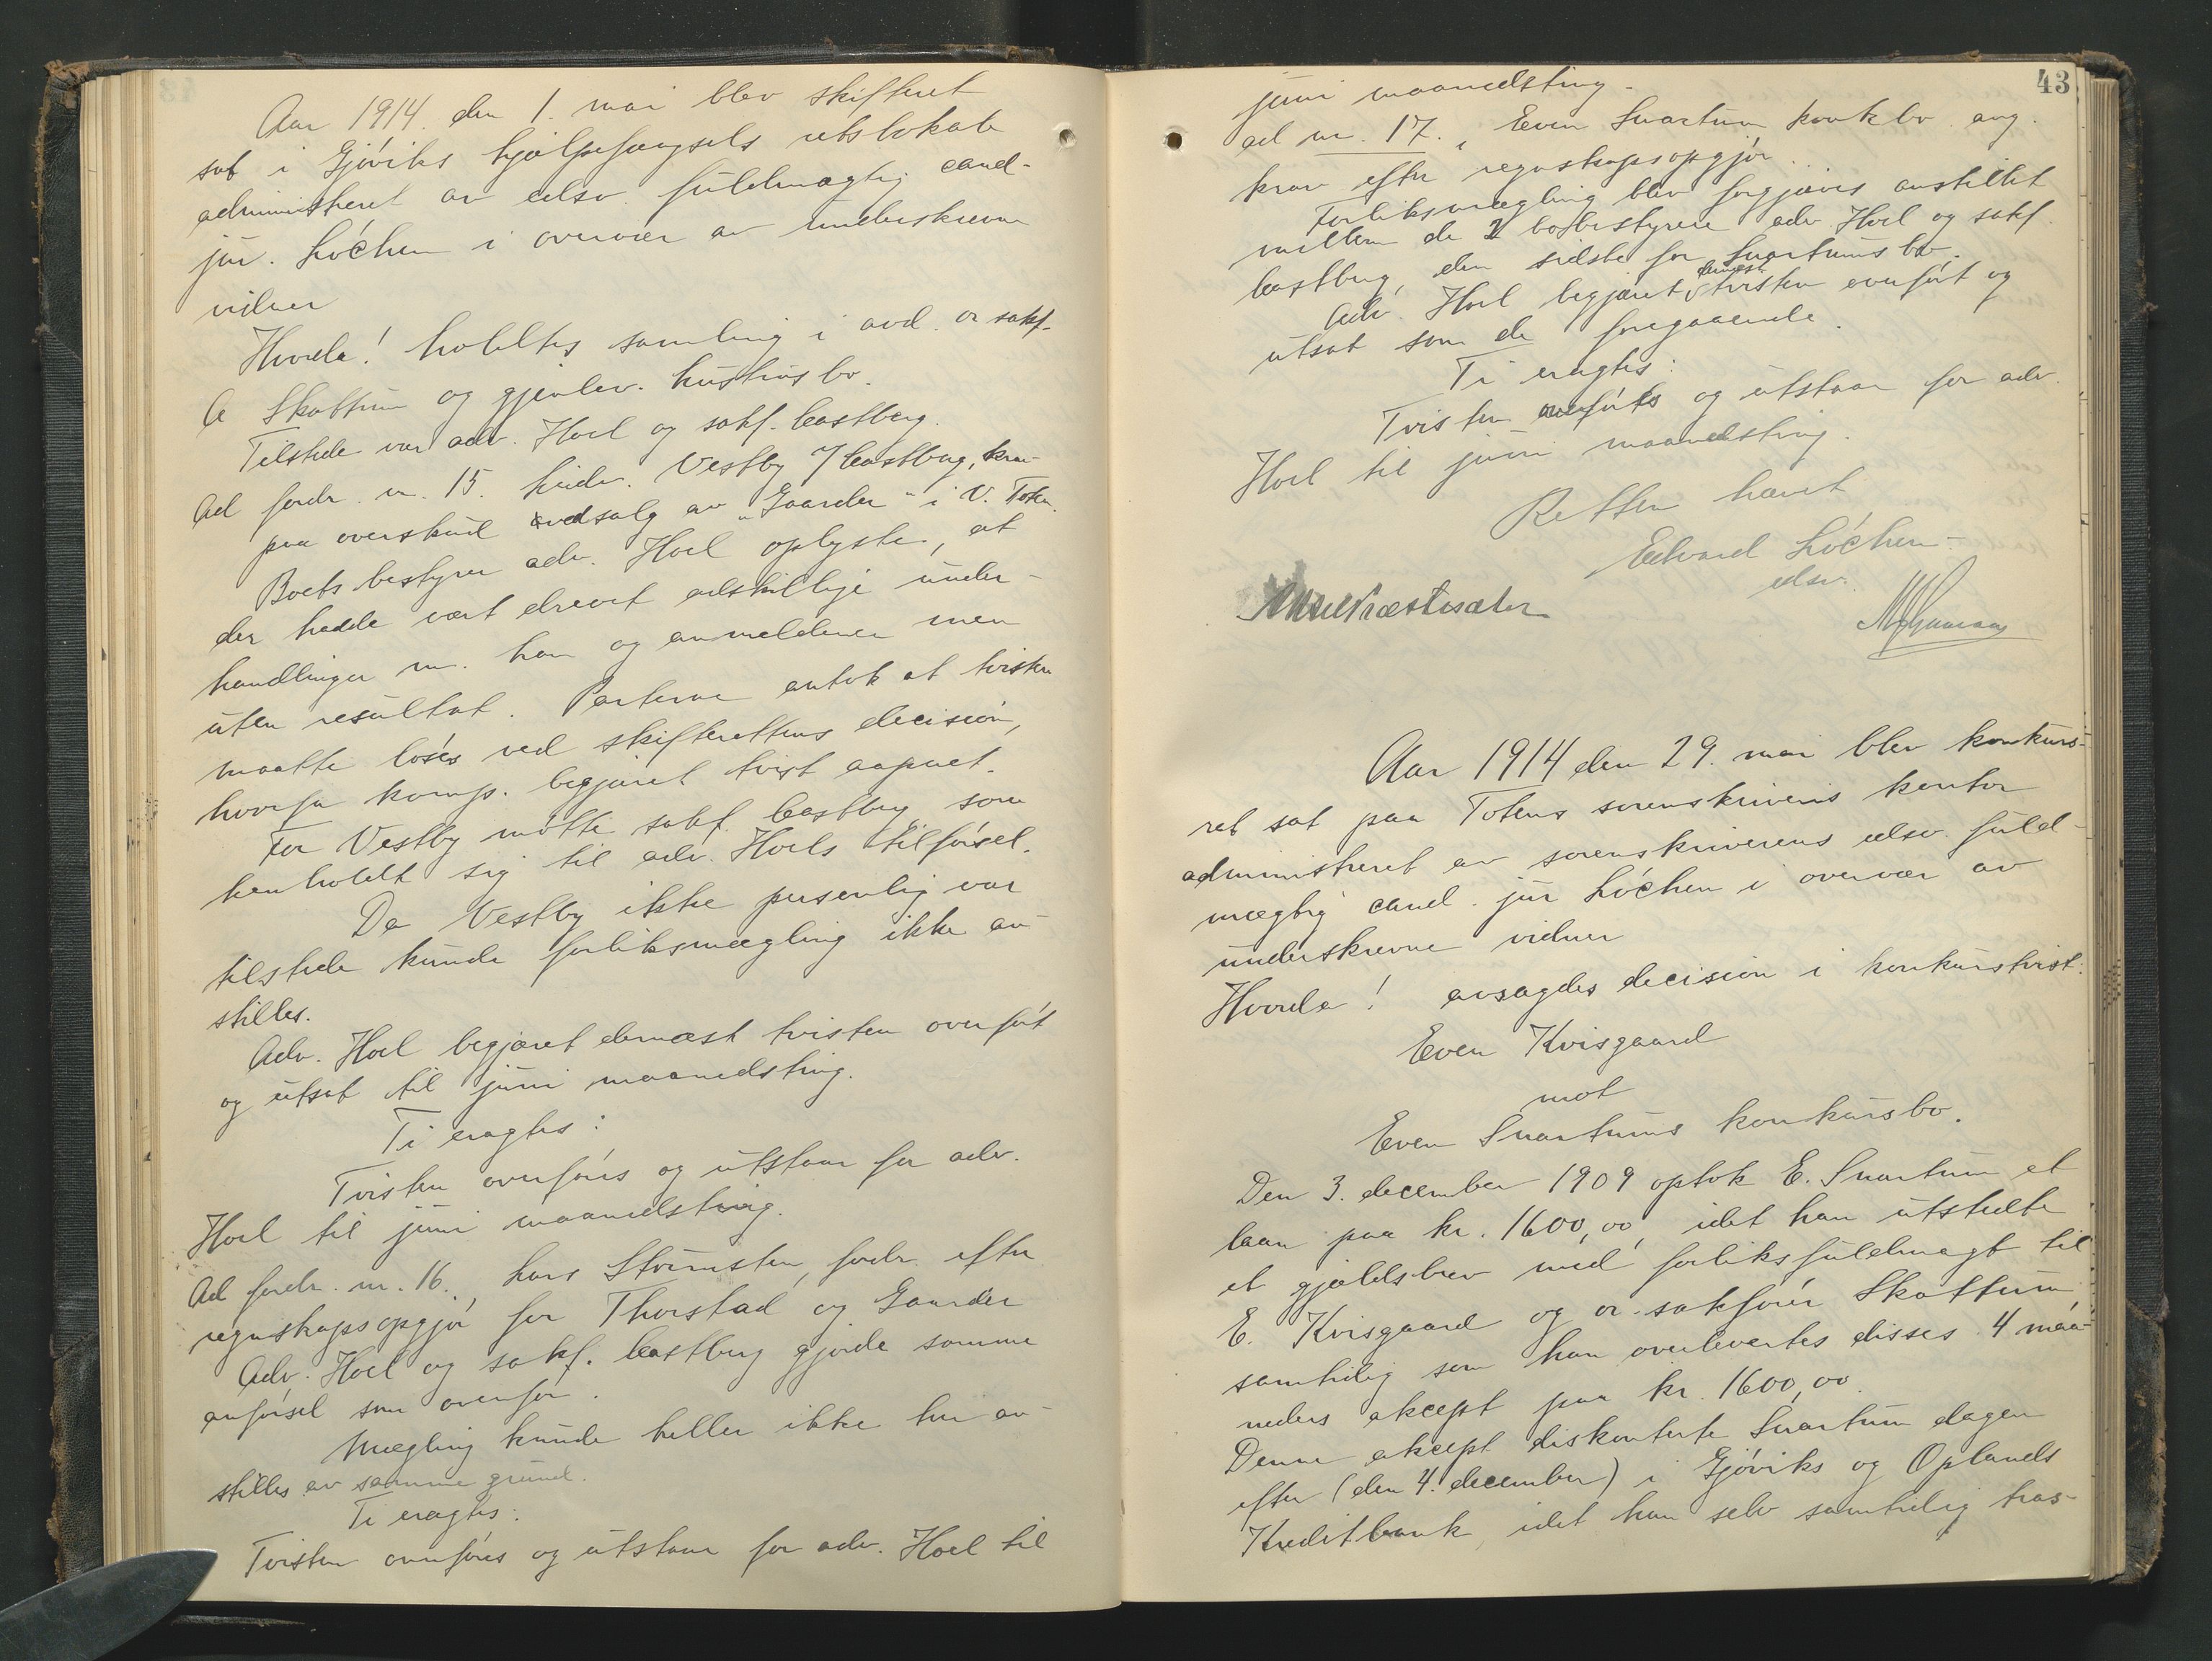 Aar 1914. den 1. mai blev skifteret
sat i Gjøviks hjælpefængsels retslokale
administreret av edsv. fuldmægtig cand.
jur. Løchen i overvær av underskrevne
vidner
Hvorda! holdtes samling i avd. or sakf.
A Skattum og gjenlev. hustrus bo.
Tilstede var adv. Hoel og sakf. Castberg.
Ad fordr. nr. 15. Vestby / Castberg, krav
paa overskud ved salg av „Gaarder" i V. Toten.
Boets bestyrer adv. Hoel oplyste, at
der hadde vært drevet adskillige under-
handlinger m. ham og anmelderen men
uten resultat. Parterne antok at tvisten
maatte løses ved skifterettens decision,
hvorfor komp. begjæret tvist aapnet.
For Vestby møtte sakf. Castberg som
henholdt sig til adv. Hoels tilførsel.
Da Vestby ikke personlig var
tilstede kunde forliksmægling ikke an-
stilles.
Adv. Hoel begjæret dernæst tvisten overført
og utsat til juni maanedsting.
Ti eragtes:
Tvisten overføres og utstaar for adv.
Hoel til juni maanedsting.
Ad fordr. nr. 16., Lars Stenersten, fordr. efter
regnskapsopgjør for Thorstad og Gaarder
Adv. Hoel og sakf. Castberg gjorde samme
anførsel som ovenfor.
Mægling kunde heller ikke her an-
stilles av samme grund.
Ti eragtes:
Tvisten overføres og utstaar for adv. Hoel til
43
juni maanedsting.
ad nr. 17., Even Snartum konkbo ang.
krav efter regnskapsopgjør.
Forliksmægling blev forgjæves anstillet
mellem de 2 bobestyrere adv. Hoel og sakf.
Castberg, den sidste for Snartums bo.
Adv. Hoel begjæret dernæst tvisten overført og
utsat som de foregaaende.
Ti eragtes:
Tvisten overføres og utstaar for adv.
Hoel til juni maanedsting.
Retten hævet
Edvard Løchen
edsv.
Aar 1914 den 29. mai blev konkurs-
ret sat paa Totens sorenskriveris kontor
administreret av sorenskriverens edsv. fuld-
mægtig cand. jur Løchen i overvær av
underskrevne vidner
Hvorda! avsagdes decision i konkurstvist:
Even Kvisgaard
mot
Even Snartums konkursbo.
Den 3. december 1909 optok E. Snartum et
laan paa kr. 1600,00, idet han utstedte
et gjældsbrev med forliksfuldmagt til
E. Kvisgaard og or. sakfører Skattum
samtidig som han overlevertes disses 4 maa-
neders akcept paa kr. 1600,00.
Denne akcept diskonterte Snartum dagen
efter (den 4. december) i Gjøviks og Oplands
Kreditbank, idet han selv samtidig tras-